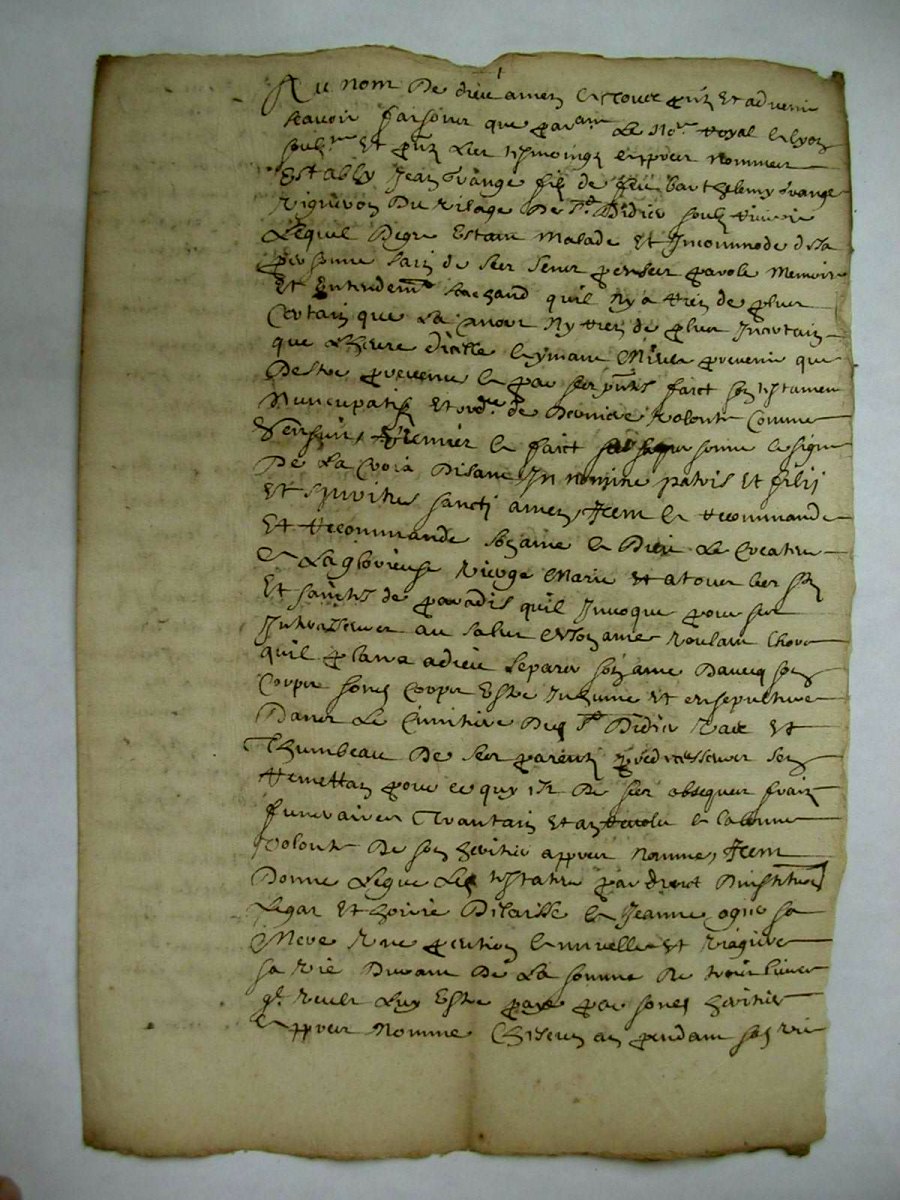 Au nom De dieu amen a Tous pñs Et advenir
scavoir faisons que par dvm Le No.re Royal a lyon
soubne Et pñs Les tesmoings appres nommes
Estably Jean Frange fils de feu barthelemy frange
vigneron Du vilage De St Didier soubz
Lequel Degre Estant Malade Et Incommode dsa
personne sain de ses sens penser parole Memoire
Et Entendemt sachand quil ny a rien de plus
Certain que La mort Ny rien de plus Incertain
que Lheure dicelle aymant Mieux prevenir que
Destre prevenu a par ses pñts faict son testament
Nuncupatif Et ordre de Derniere volonte Comme
Sensuit, Premier a faict sur sa personne le signe
De La Croix Disant In nomine patris Et filij
Et spiritus sancti amen, Item a recommande
Et recommande son ame a Dieu Le Createur
a La glorieuse vierge Marie Et a tous les sts
Et sainctes de paradis quil Invoque pour ses
Intercesseurs au salut de son ame voulant lhors
quil plaira a dieu separer son ame Davecq son
Corps sond Corps Estre Inhume Et ensepulture
Dans Le Cimitiere Dud St Didier vaze Et
Thumbeau De ses parents predecesseurs sen
remettan pour ce quy est De ses obseques frais
funeraires Trantain et a la bonne
volonte De son heritier appres nomme, Item
Donne Legue Led testateur par droict Dinstitution
Legat Et hoirie Delaisse a Jeanne ogier sa
Mere Une pention annuelle Et viagere
sa vie Durant De La somme De trois livres
quil veult Luy Estre paye par sond heritier
appres Nomme Chiscun an pendant sad vie